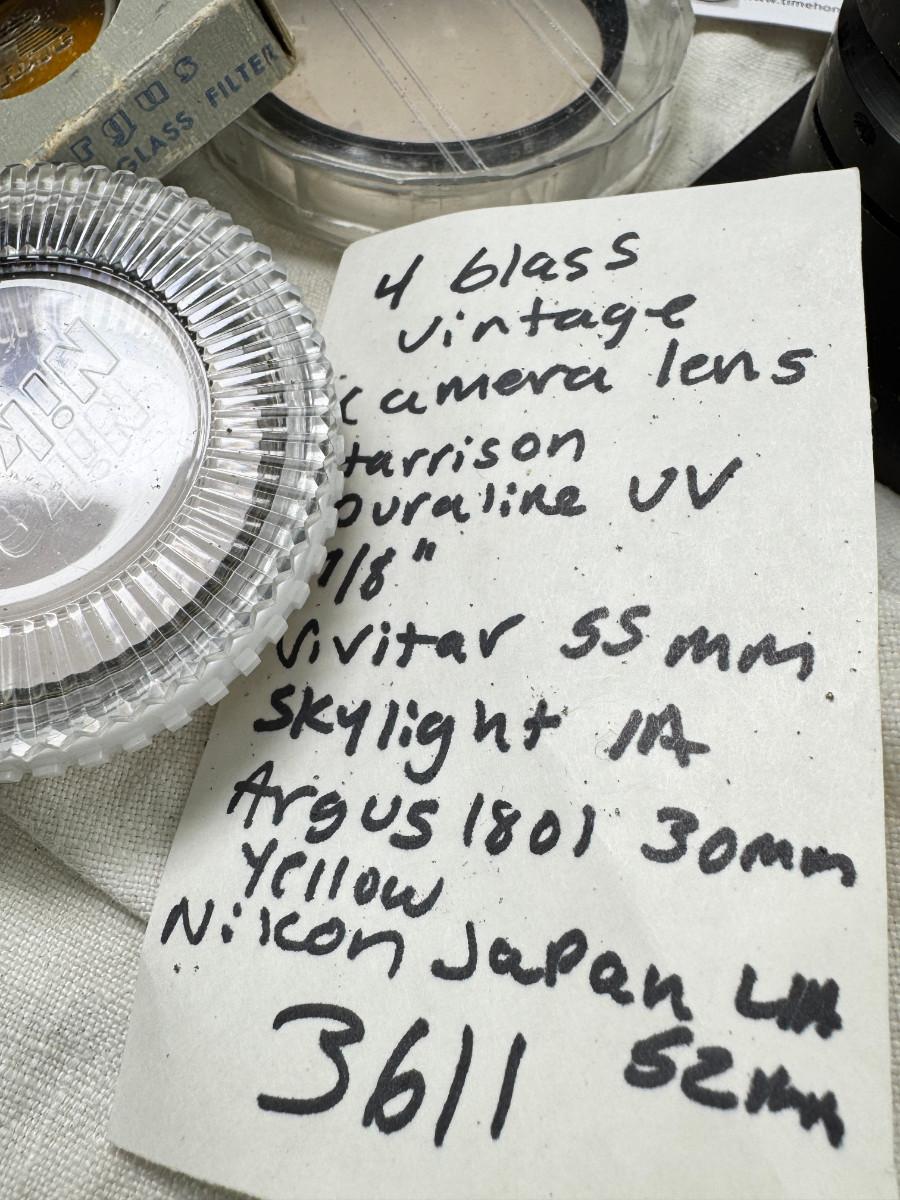 www.timehom
rgus
GLASS FILTER
Nikon
4 Glass
vintage
camera lens
Harrison
Duraline UV
7/8"
Vivitar 55mm
Skylight 1A
Argus 1801 30mm
Yellow
Nikon Japan L1A
52mm
3611